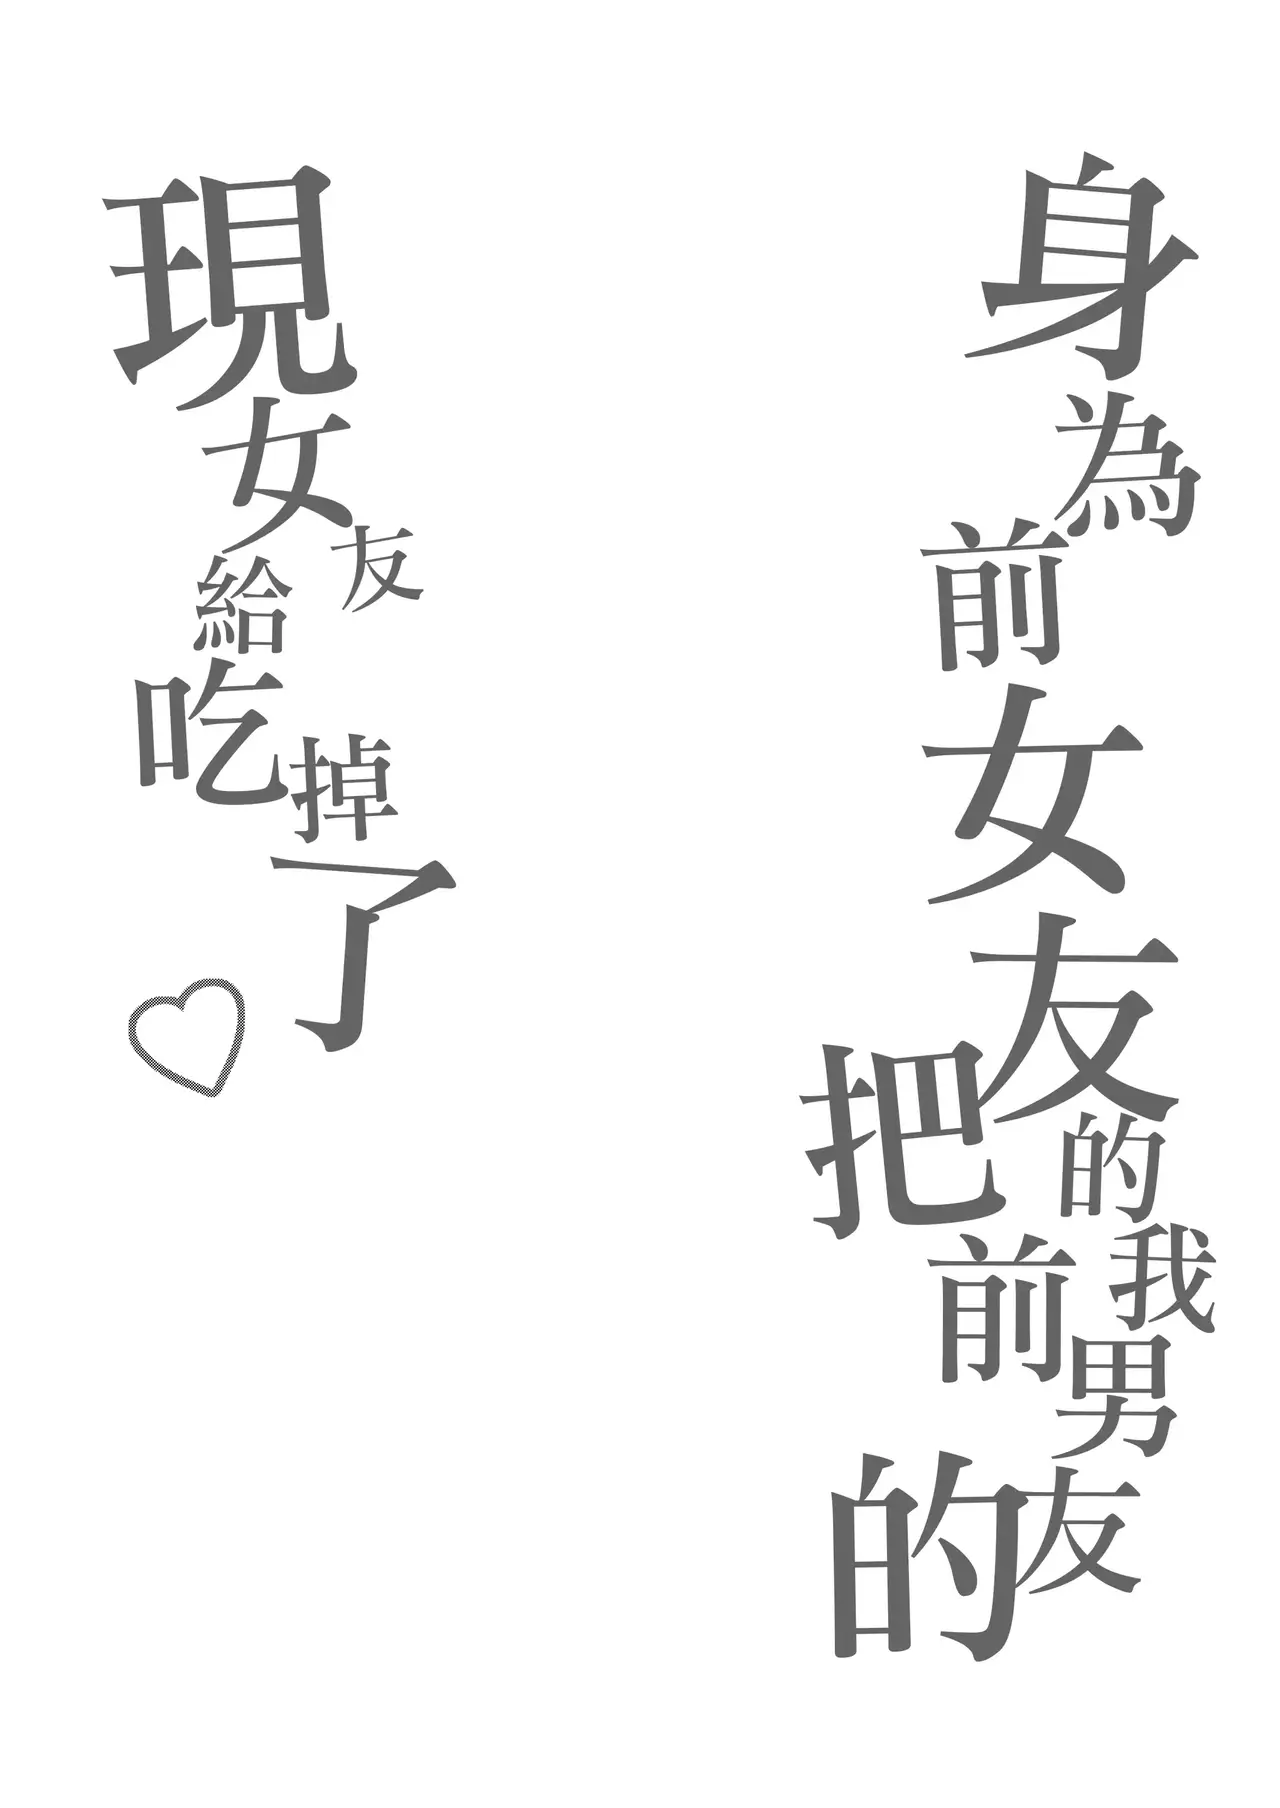 身為前女友的我
把前男友的
現女友給吃掉了♡